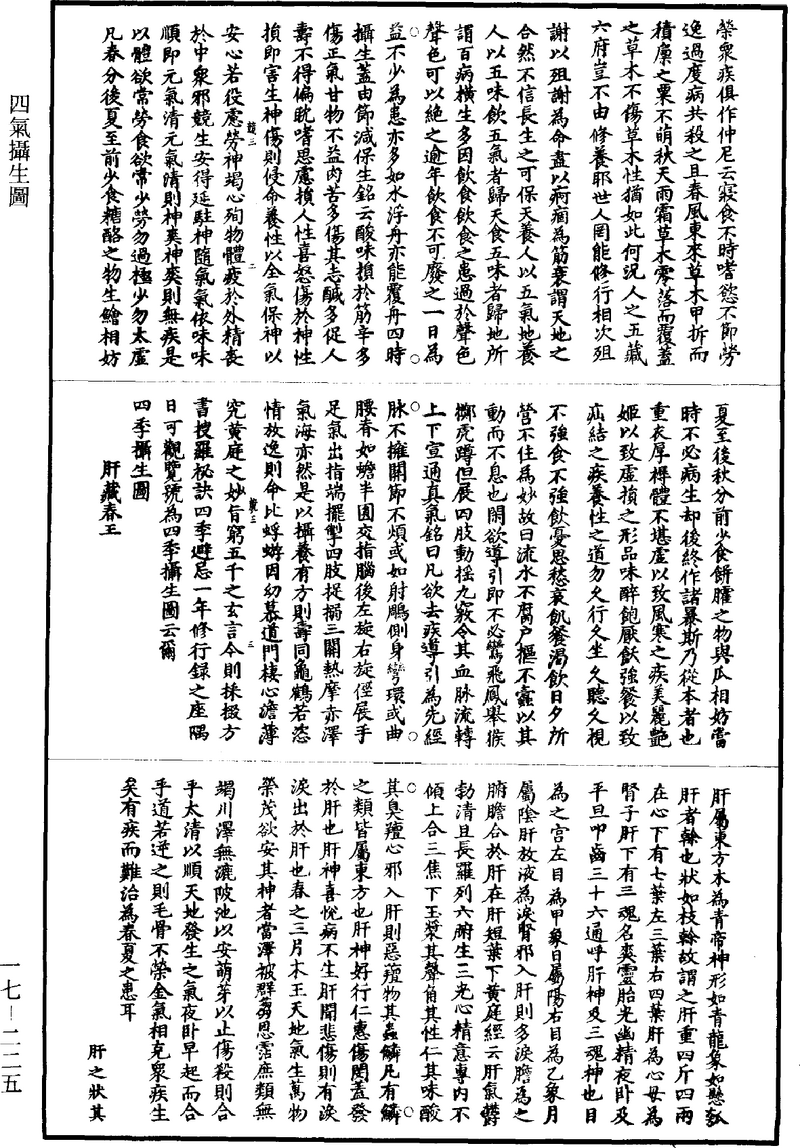 四氣攝生圖
榮衆疾俱作仲尼云寢食不時嗜慾不節勞
逸過度病共殺之且春風東來草木甲拆而
積廩之粟不萌秋天雨霜草木零落而覆蓋
之草木不傷草木性猶如此何況人之五藏
六府豈不由修養耶世人罔能修行相次殂
謝以殂謝為命盡以痾痼為筋衰謂天地之
合然不信長生之可保天養人以五氣地養
人以五味飲五氣者歸天食五味者歸地所
謂百病橫生多因飲食飲食之患過於聲色
聲色可以絶之逾年飲食不可廢之一日為
益不少為患亦多如水浮舟亦能覆舟四時
攝生蓋由節減保生銘云酸味損於筋辛多
傷正氣甘物不益肉苦多傷其志鹹多促人
壽不得偏耽嗜思慮損人性喜怒傷於神性
損即害生神傷則侵命養性以全氣保神以
安心若役慮勞神竭心殉物體疲於外精喪
於中衆邪競生安得延駐神隨氣氣依味味
順即元氣清元氣清則神爽神爽則無疾是
以體欲常勞食欲常少勞勿過極少勿太虛
凡春分後夏至前少食糖酪之物生鱠相妨
夏至後秋分前少食餅臛之物與瓜相妨當
時不必病生却後終作諸暴斯乃從本者也
重衣厚褥體不堪虛以致風寒之疾美麗艷
姬以致虛損之形品味醉飽厭飫強餐以致
疝結之疾養性之道勿久行久坐久聽久視
不強食不強飲憂思愁哀飢餐渴飲日夕所
營不住為妙故曰流水不腐户樞不蠹以其
動而不息也閑欲導引即不必鸞飛鳳舉猨
擲虎蹲但展四肢動搖九竅令其血脉流轉
上下宣通真氣銘曰凡欲去疾導引為先經
脉不擁關節不煩或如射鵰側身彎環或曲
腰脊如蟾半圓交指腦後左旋右旋徑展手
足氣出指端擺掣四肢捉搦三關熱摩赤澤
氣海亦然是以攝養有方則壽同龜鶴若恣
情放逸則命比蜉蝣因幼慕道門棲心澹薄
究黃庭之妙旨窮五千之玄言今則採掇方
書搜羅祕訣四季避忌一年修行録之座隅
日可觀覽號為四季攝生圖云爾
四季攝生圖
肝藏春王
肝屬東方木為青帝神形如青龍象如懸瓠
肝者榦也狀如枝榦故謂之肝重四斤四兩
在心下有七葉左三葉右四葉肝為心母為
腎子肝下有三魂名爽靈胎光幽精夜卧及
平旦叩齒三十六通呼肝神及三魂神也目
為之宮左目為甲象日屬陽右目為乙象月
屬陰肝放液為淚腎邪入肝則多淚膽為之
腑膽合於肝在肝短葉下黃庭經云肝氣鬱
勃清且長羅列六腑生三光心精意專内不
傾上合三焦下玉漿其聲角其性仁其味酸
其臭羶心邪入肝則惡羶物其蟲鱗凡有鱗
之類皆屬東方也肝神好行仁惠傷閔蓋發
於肝也肝神喜悅病不生肝聞悲傷則有淚
淚出於肝也春之三月木王天地氣生萬物
榮茂欲安其神者當澤被群芻恩霑庶類無
竭川澤無漉陂池以安萌芽以止傷殺則合
乎太清以順天地發生之氣夜卧早起而合
乎道若逆之則毛骨不榮金氣相克衆疾生
矣有疾而難治為春夏之患耳
肝之狀其
一七－二二五